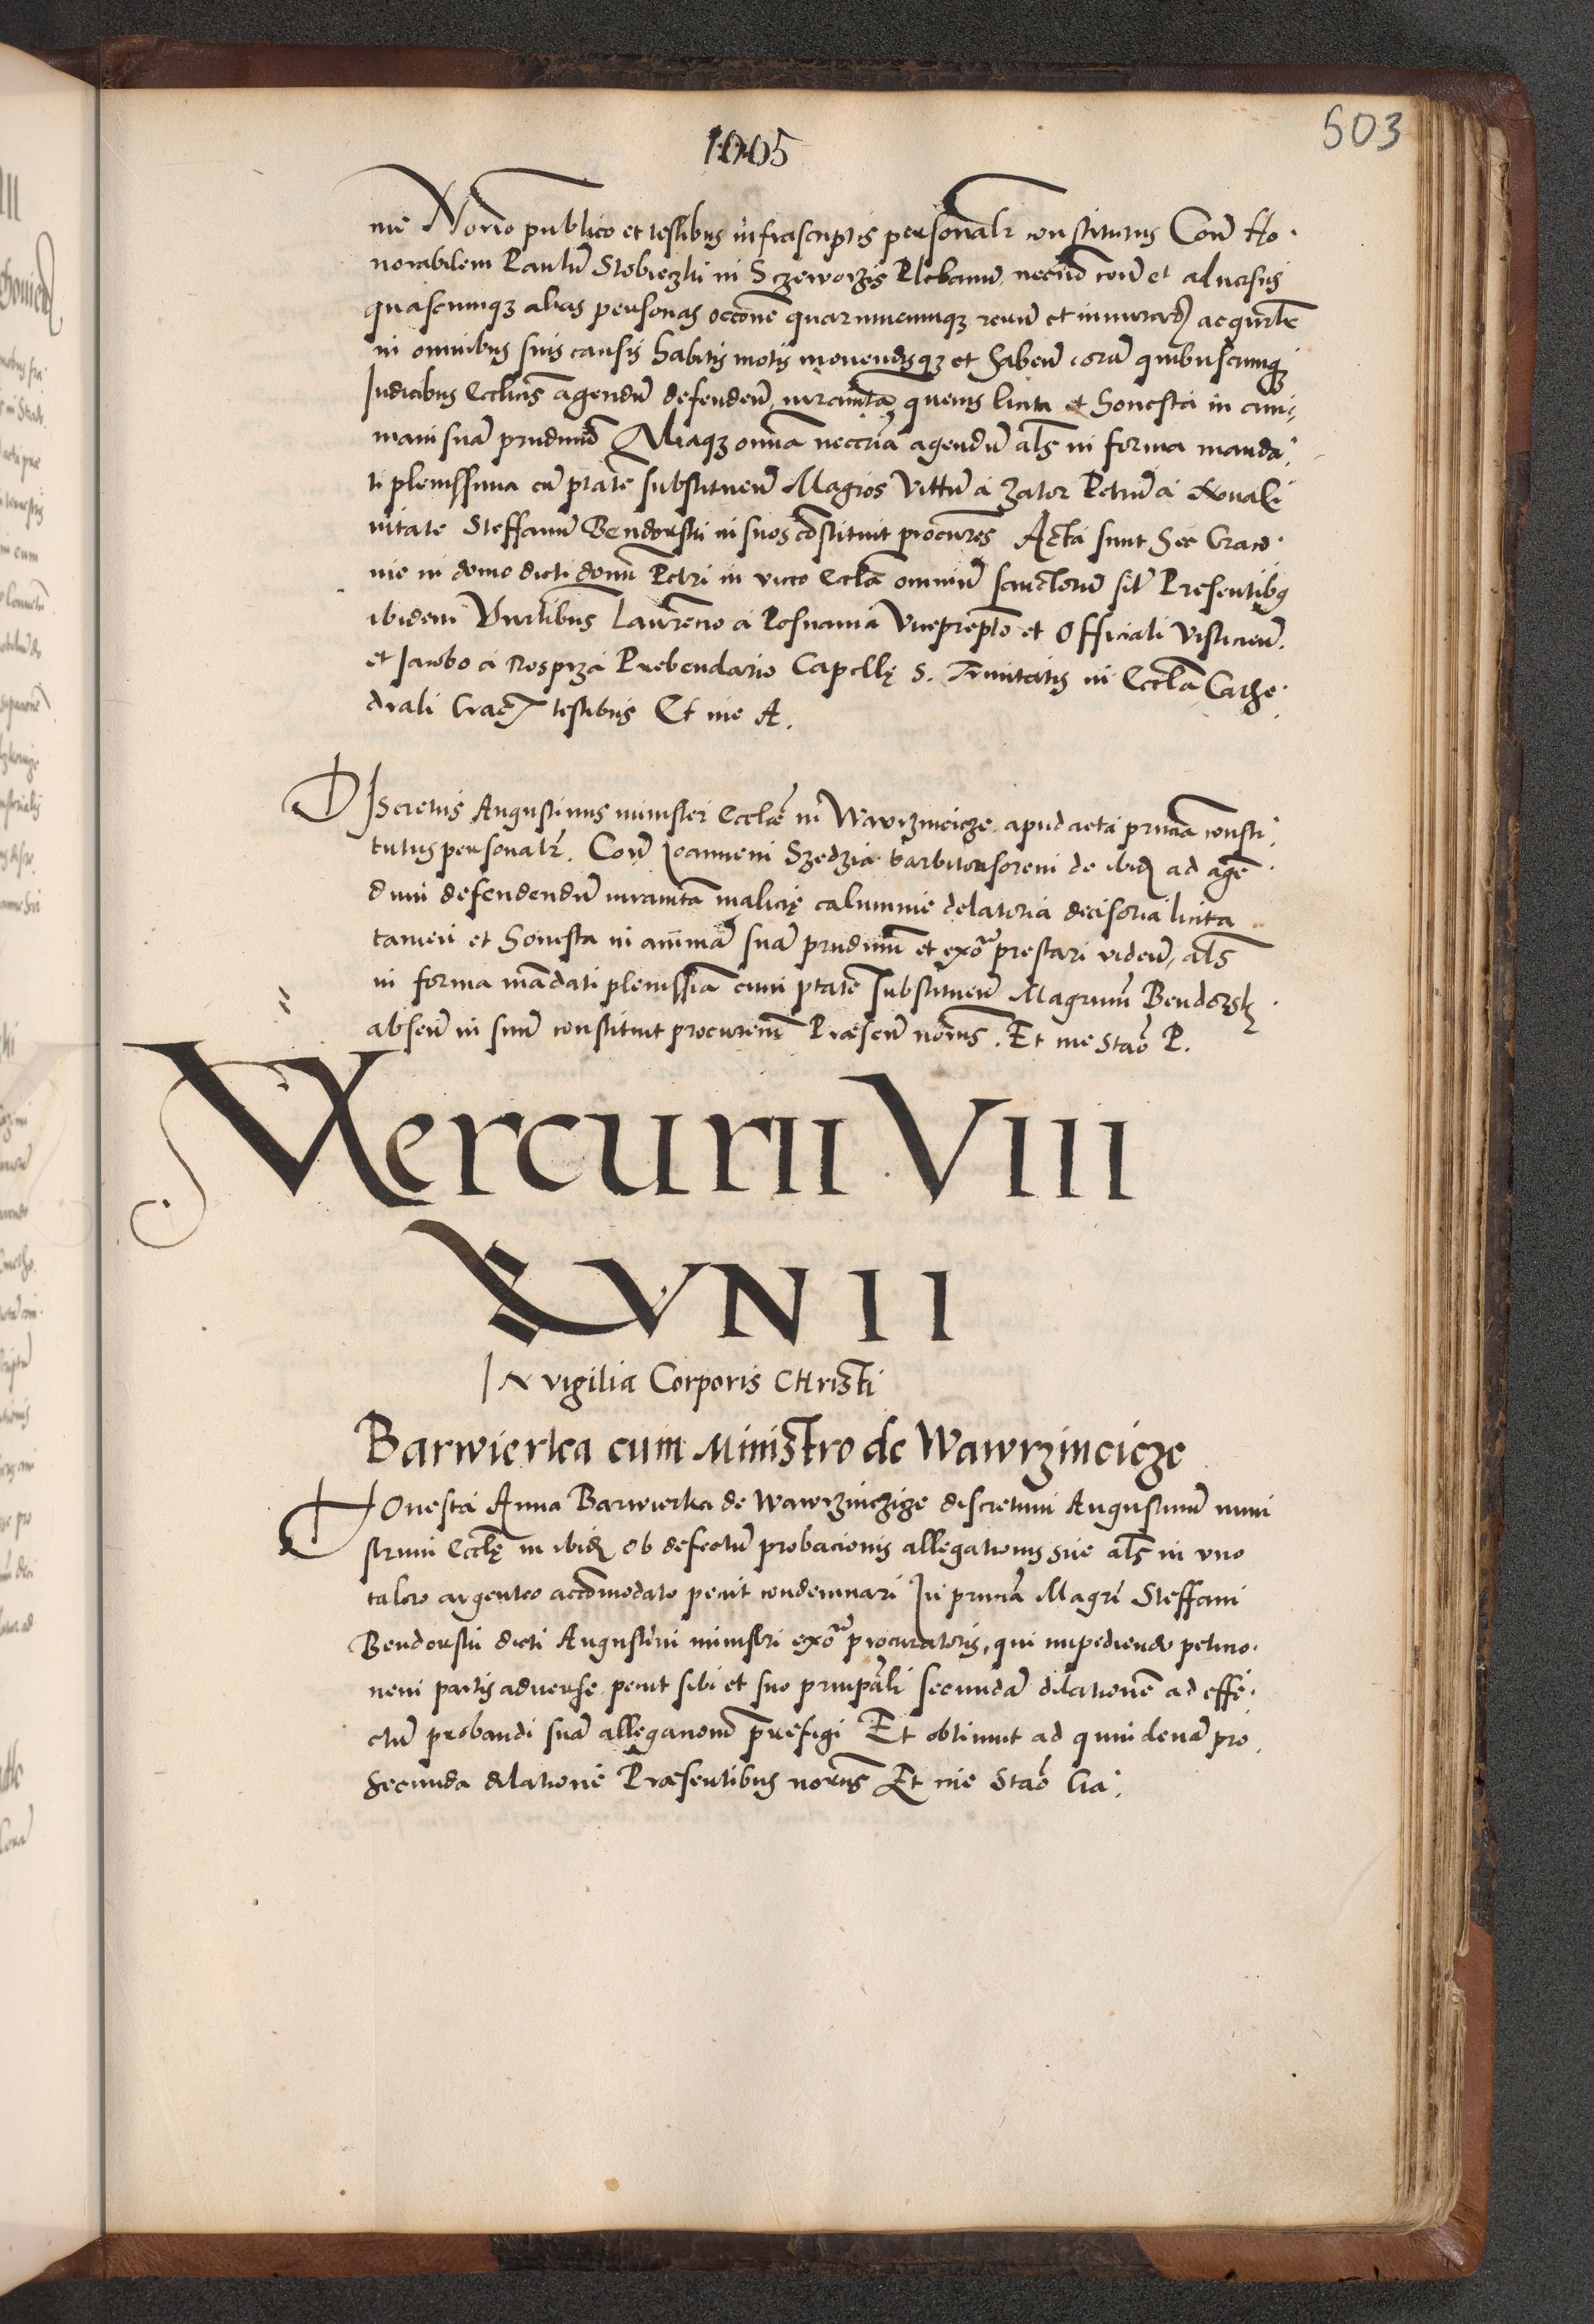 503
1005
me Norio publico et testibus infrascriptis personalr constitutus Con̄ Ho
norabilem Paulū Slobieczki in Sczeworzis Plebanum, necnō con̄ et adversus
quascunqz alias personas occōne quarumcumqz rerum et iniuriarū ac gnrlē
in omnibus suis causis habitis motis movendisqz et haben̄ corā quibuscumqz
Iudicibus Ecclicis agendū defenden̄, iuramtaqz quevis licita et honesta in ani
mam suā prndum Aliaqz omnia neccria agendū als in forma manda
ti plenissima cū ptāte substituen̄ Magros Vittū a Zator Petrum a
vitate Steffanū Bendorski in suos cōstituit procures Acta sunt hec Craco
vie in domo dicti domi Petri in vico Eccla omniū sanctorum sit̄ Presentibus
ibidem Vnrlibus Laurēcio a Posnania Viceprepto et Officiali Visliciēn̄.
et Jacobo a Prebendario Capellę S. Trinitatis in Eccla Cathe
drali Crac testibus Et me A.
DIscretus Augustinus minister Ecclae in Wawrzincicze apud acta prntia consti
tutus personalr. Con̄ Joannem Szedzia barbitonsorem de ibid ad agē
dum defendendū iuramta malicię calumnie delatoria decisoria licita
tamen et honesta in animā suā prndum et exō prestari viden̄, als
in forma mādati plenissia cum ptāte substituen̄ Magrum Bendorsk
absen̄ in suum constituit procurem Praesen̄ noriis. Et me Stao P.
Mercurii VIII
IVNII
IN vigilia Corporis CHristi
Barwierka cum Ministro de Wawrzincicze
HOnesta Anna Barwierka de Wawrzinczicze discretum Augustinū mini
strum Ecclę in ibid Ob defectū probacionis allegationis sue als in uno
talero argenteo accōmodato petiit condemnari In prntia Magri Steffani
Bendorski dicti Augustini ministri exō procuratoris, qui impediendo petitio
nem partis adverse petiit sibi et suo principali secundā dilationē ad effe
ctū probandi suā allegationem prefigi Et obtinuit ad quindenā pro
secunda dilatione Praesentibus noriis Et me Stao